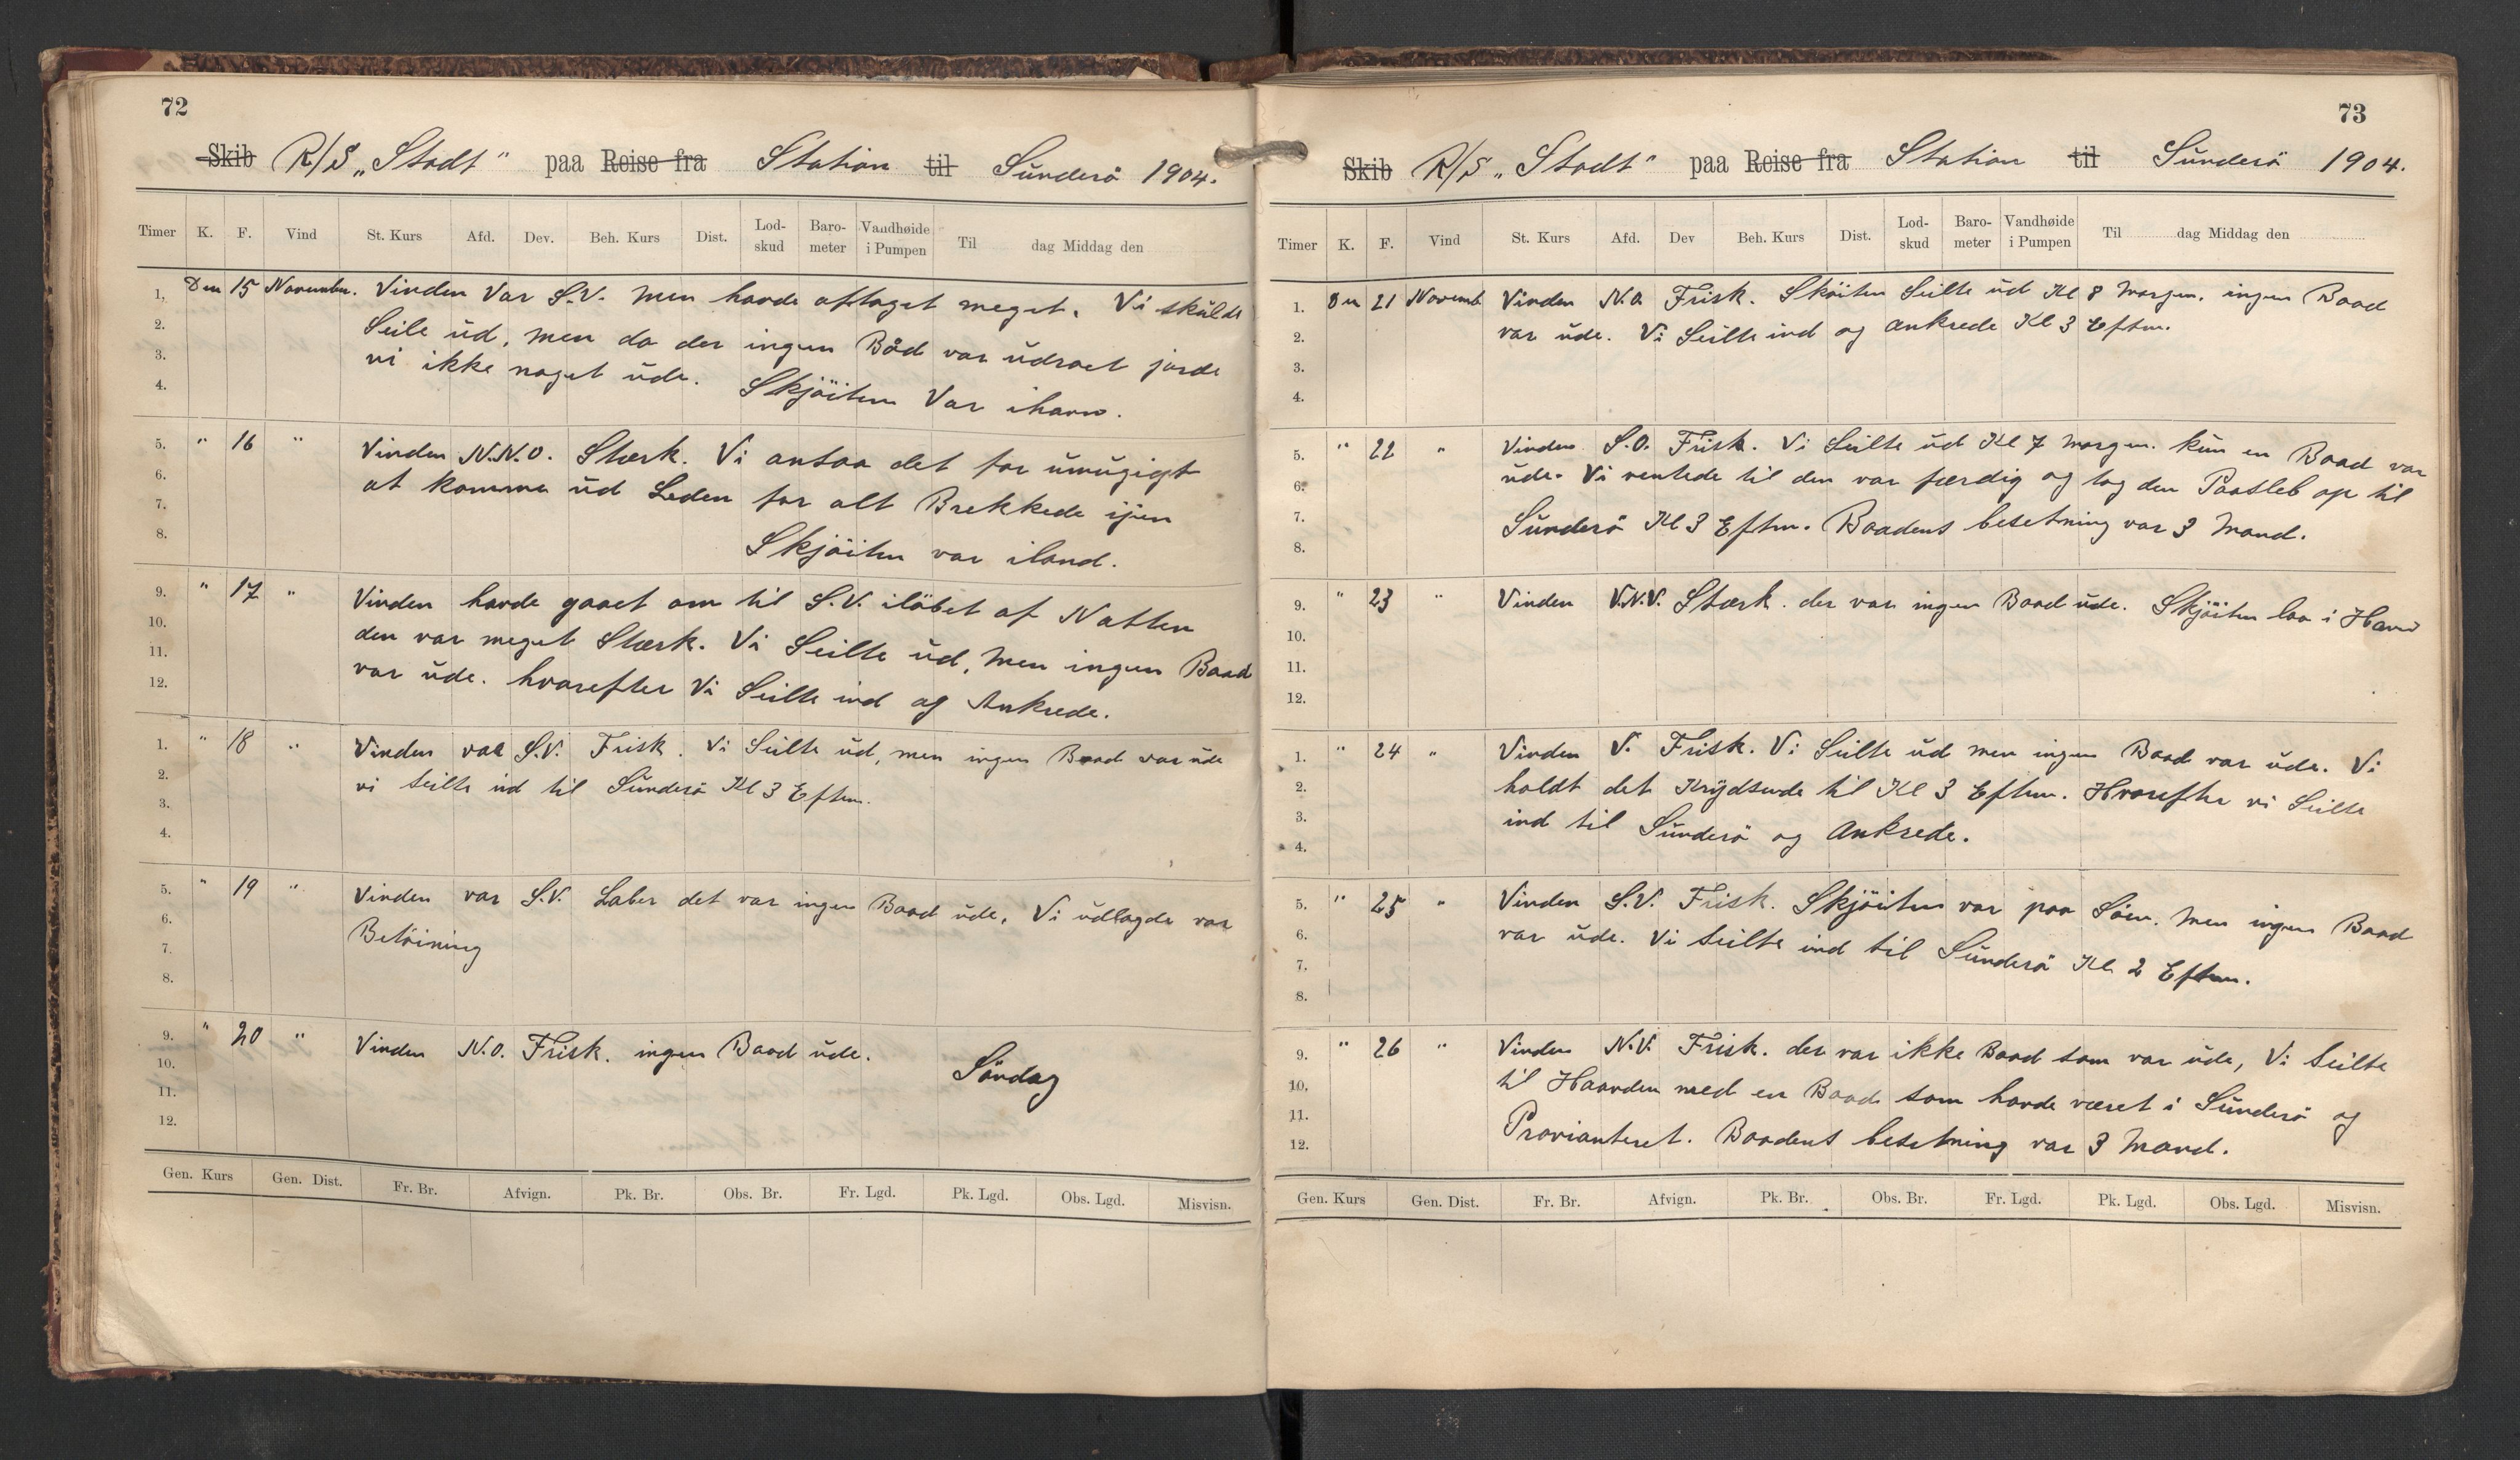 72
Skib R/S „Stadt" paa Reise fra Station til Sunderö 1904.
Timer K. F. Vind St. Kurs Afd. Dev. Beh. Kurs Dist. Lod-skud Baro-meter Vandhøide i Pumpen Til dag Middag den
1. Den 15 Novembr. Vinden Var S.V. men havde aftaget meget. Vi skulde
2. Seile ud, men da der ingen Båd var udroet jorde
3. vi ikke noget ude. Skjöiten Var ihavn.
4.
5. " 16 " Vinden N.N.O. Stærk. Vi antaa det for umugigt
6. at komme ud Leden for alt Brekkede ijen
7. Skjöiten var iland.
8.
9. " 17 " Vinden havde gaaet om til S.V. iløbet af Natten
10. den var meget Stærk. Vi Seilte ud, men ingen Baad
11. var ude. hvorefter Vi Seilte ind og Ankrede.
12.
1. " 18 " Vinden var S.V. Frisk. Vi Seilte ud, men ingen Baad var ude
2. vi seilte ind til Sunderö Kl 3 Eftm.
3.
4.
5. " 19 " Vinden var S.V. Laber det var ingen Baad ude. Vi udlagde vor
6. Betöining
7.
8.
9. " 20 " Vinden N.O. Frisk. ingen Baad ude.
10. Söndag
11.
12.
Gen. Kurs Gen. Dist. Fr. Br. Afvign. Pk. Br. Obs. Br. Fr. Lgd. Pk. Lgd. Obs. Lgd. Misvisn.
73
Skib R/S „Stadt" paa Reise fra Station til Sunderö 1904.
Timer K. F. Vind St. Kurs Afd. Dev Beh. Kurs Dist. Lod-skud Baro-meter Vandhøide i Pumpen Til dag Middag den
1. Den 21 Novemb Vinden N.O. Frisk. Sköiten Seilte ud Kl 8 Morgen. ingen Baad
2. var ude. Vi Seilte ind og ankrede Kl 3 Eftm.
3.
4.
5. " 22 " Vinden S.O. Frisk. Vi Seilte ud Kl 7 Morgen. kun en Baad var
6. ude. Vi ventede til den var færdig og tog den Paasleb op til
7. Sunderö Kl 3 Eftm. Baadens besetning var 3 Mand.
8.
9. " 23 " Vinden V.N.V. Stærk. der var ingen Baad ude. Skjöiten laa i Havn
10.
11.
12.
1. " 24 " Vinden V. Frisk. Vi Seilte ud men ingen Baad var ude. Vi
2. holdt det Krydsende til Kl 3 Eftm. Hvorefter vi Seilte
3. ind til Sunderö og Ankrede.
4.
5. " 25 " Vinden S.V. Frisk. Skjöiten var paa Söen. Men ingen Baad
6. var ude. Vi seilte ind til Sunderö Kl 2 Eftm.
7.
8.
9. " 26 " Vinden N.V. Frisk. der var ikke Baad som var ude, Vi Seilte
10. til Haarden med en Baad som havde været i Sunderö og
11. Provianteret. Baadens besetning var 3 Mand.
12.
Gen. Kurs Gen. Dist. Fr. Br. Afvign. Pk. Br. Obs. Br. Fr. Lgd. Pk. Lgd. Obs. Lgd. Misvisn.